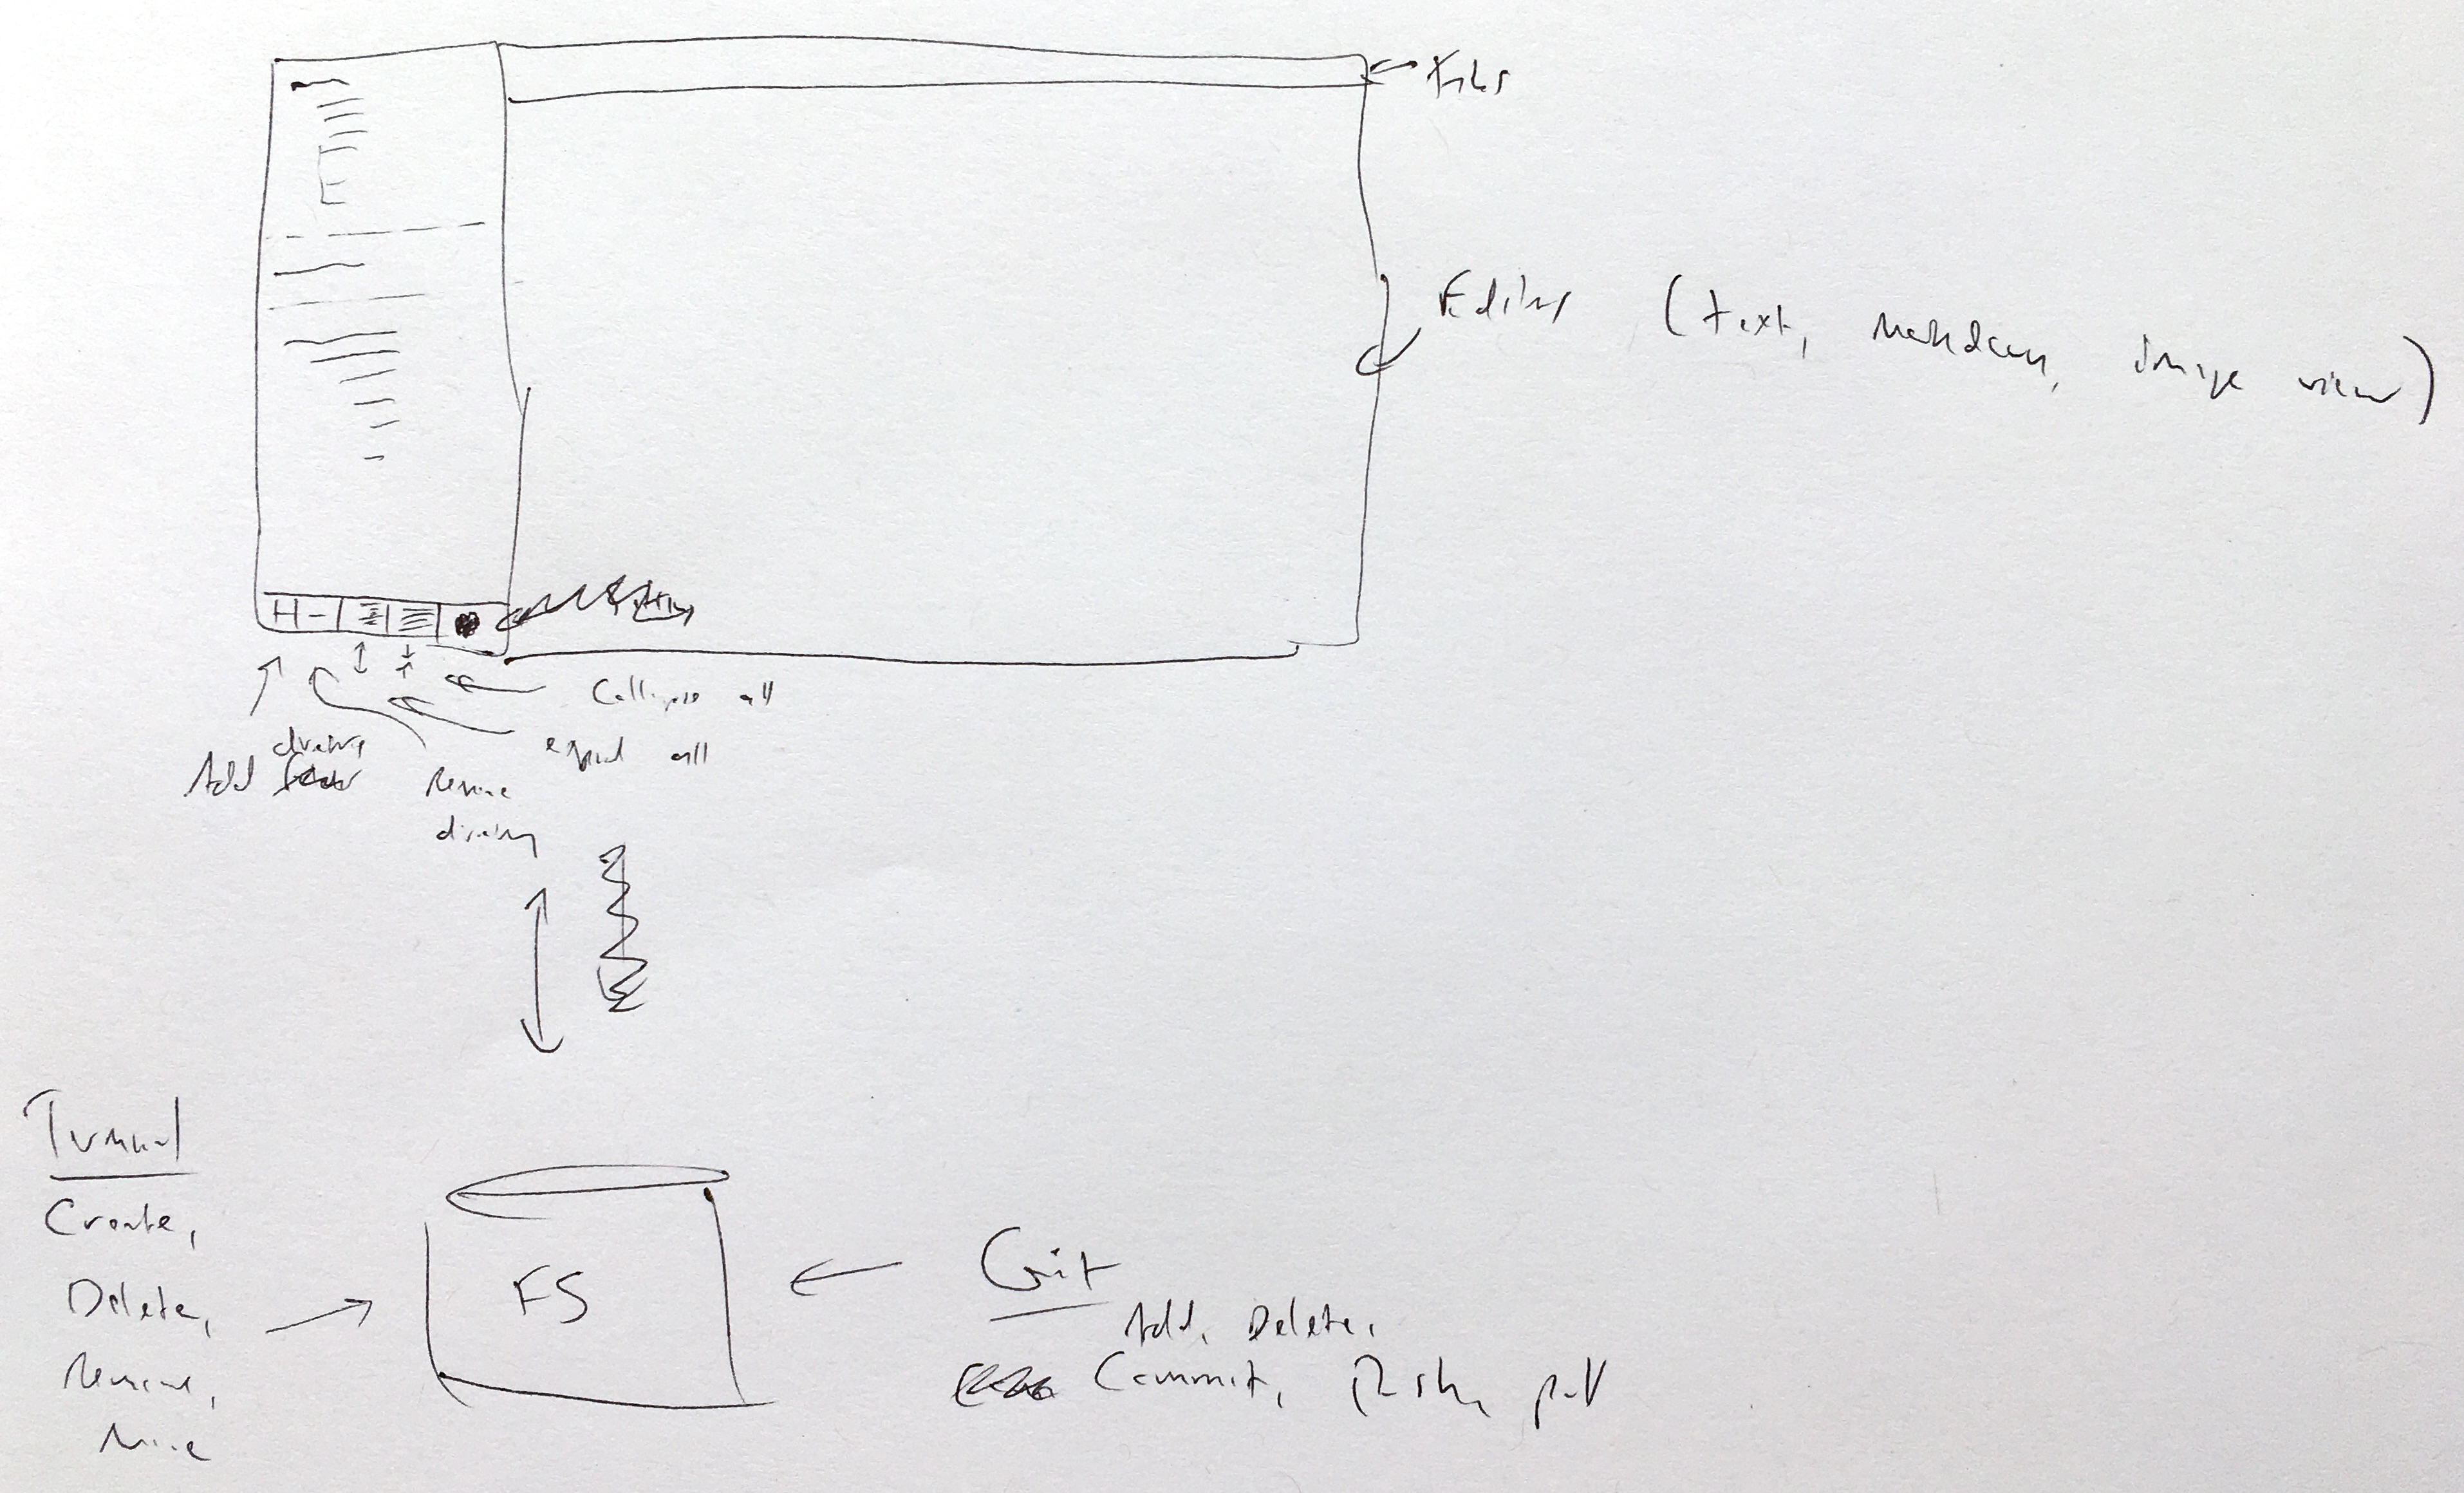 Files
Editor (text, markdown, image view)
+ -
Collapse all
expand all
directory
Add
Remove
directory
Terminal
Create,
Delete,
Rename,
Move
FS
Git
Add, Delete,
Commit, Push, pull